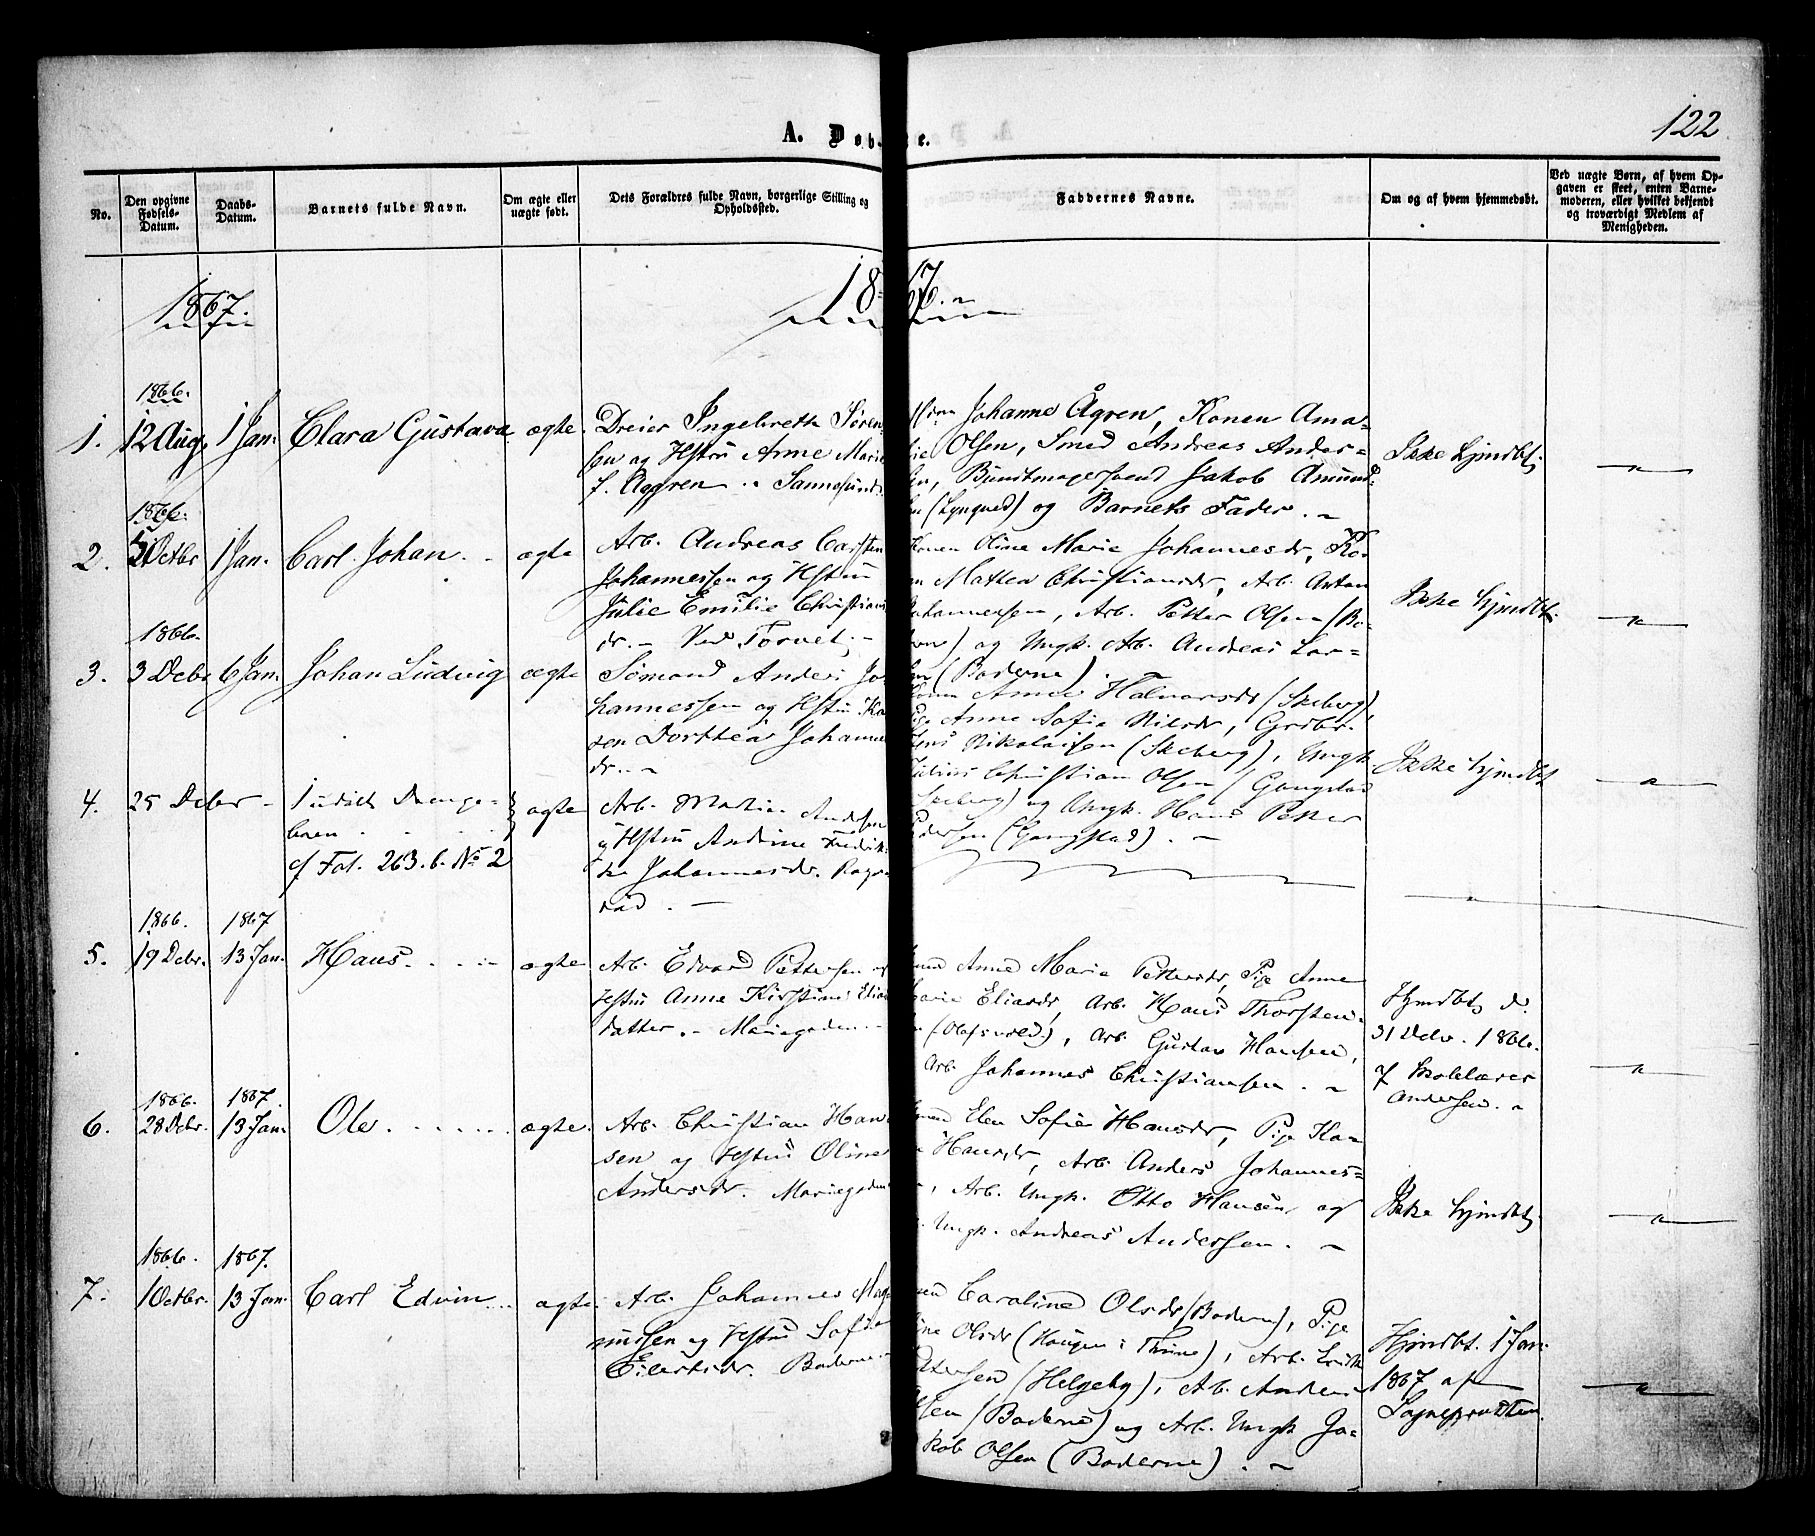 122
A. Døb
e.
No.
Den opgivne Fødsels-Datum.
Daabs-Datum.
Barnets fulde Navn.
Om ægte eller uægte født.
Dets Forældres fulde Navn, borgerlige Stilling og Opholdsted.
Faddernes Navne.
Om og af hvem hjemmedøbt.
Ved uægte Børn, af hvem Opgaven er skeet, enten Barnemoderen, eller hvilket bekjendt og troværdigt Medlem af Menigheden.
1867.
1867.
1866.
1. 12 Aug. 1 Jan. Clara Gustava ægte.
Dreier Ingebreth Søren
sen og Hstru Anne Marie
f. Aggren .. Sannesund
Johanne Ågren, Konen Ama-
lie Olsen, Smed Andreas Ander-
sen, Buntmagersvend Jakob Amund
sen (Lyngved) og Barnets Fader. ~
Ikke Hjmdbt
— " —
1866.
2. 5 Octbr 1 Jan. Carl Johan. ægte
Arb. Andreas Carsten
Johannessen og Hstru
Julie Emilie Christians
dr. - Ved Torvet. -
Konen Oline Marie Johannesdr, Ko-
nen Mathea Christiansdr, Arb. Anton
Johannessen, Arb. Petter Olsen (Bo-
derne) og Ungk. Arb. Andreas Lar-
sen (Boderne).
Ikke Hjmdbt.
— " —
1866.
3. 3 Debr 6 Jan. Johan Ludvig ægte
Sømand Anders Jo
hannessen og Hstru Ka
ren Dorthea Johannes
dr. . ~
Konen Anne Halvorsdr (Skeberg),
Pige Anne Sofie Nilsdr, Grdbr.
Jens Nikolaisen (Skeberg), Ungk.
Julius Christian Olsen (Gangstad
Skeberg) og Ungk. Hans Petter
Pedersen (Gangstad). -
Ikke Hjmdbt
— " —
4. 25 Decbr - 1 udøbt Drenge-
barn . . . .
cf Fol. 263.b. No 2
ægte
Arb. Martin Andersen
og Hstru Andrine Fredrik-
ke Johannesdr.
rud. —
1866. 1867
5. 19 Debr. 13 Jan. Hans. . . . ægte
Arb. Edvard Pettersen og
Hstru Anne Kirstine Elias
datter. - Mariegaden -
Anne Marie Pettersdr, Pige Anne
Marie Eliasdr, Arb. Hans Thorsten-
sen (Olafsvold), Arb. Gustav Hansen,
Arb. Johannes Christiansen. ~
Hjmdbt d.
31 Debr. 1866.
af Skolelærer
Andersen. ~
— " —
1866. 1867.
6. 28 Debr. 13 Jan. Ole. . . . . . ægte.
Arb. Christian Han
sen og Hstru Oline
Andersdr. Mariegaden
Elen Sofie Hansdr, Pige Ka-
Hansdr, Arb. Anders Johannes-
Arb. Ungk. Otto Hansen og
Ungk. Andreas Andersen. ~
Ikke Hjmdbt.
— " —
1866. 1867.
7. 1 Octbr. 13 Jan. Carl Edvin ... ægte.
Arb. Johannes Mag
nussen og Hstru Sofie
Eilertsdr. Boderne
Caroline Olsdr (Boderne), Pige
Olsdr (Haugen i Thune), Arb.
Pettersen (Helgeby), Arb. Anders
Olsen (Boderne) og Arb. Ungk Ja-
kob Olsen (Boderne). ~
Hjmdbt. 1 Jan.
1867 af
Sognepræsten.
— " —